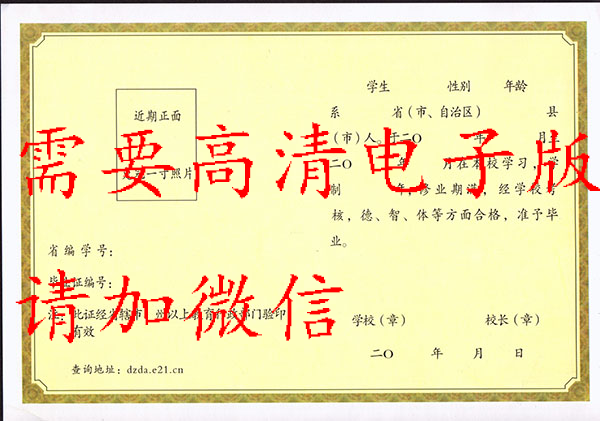 近期正面
一寸照片
省编学号：
毕业证编号：
注：此证经省辖市、州以上教育行政部门验印
有效
查询地址：dzda.e21.cn
学生 性别 年龄
系 省（市、自治区） 县
（市）人，于二〇 年 月
二〇 年 月在本校学习，学
制 年，修业期满，经学校考
核，德、智、体等方面合格，准予毕
业。
学校（章） 校长（章）
二〇 年 月 日
需要高清电子版
请加微信